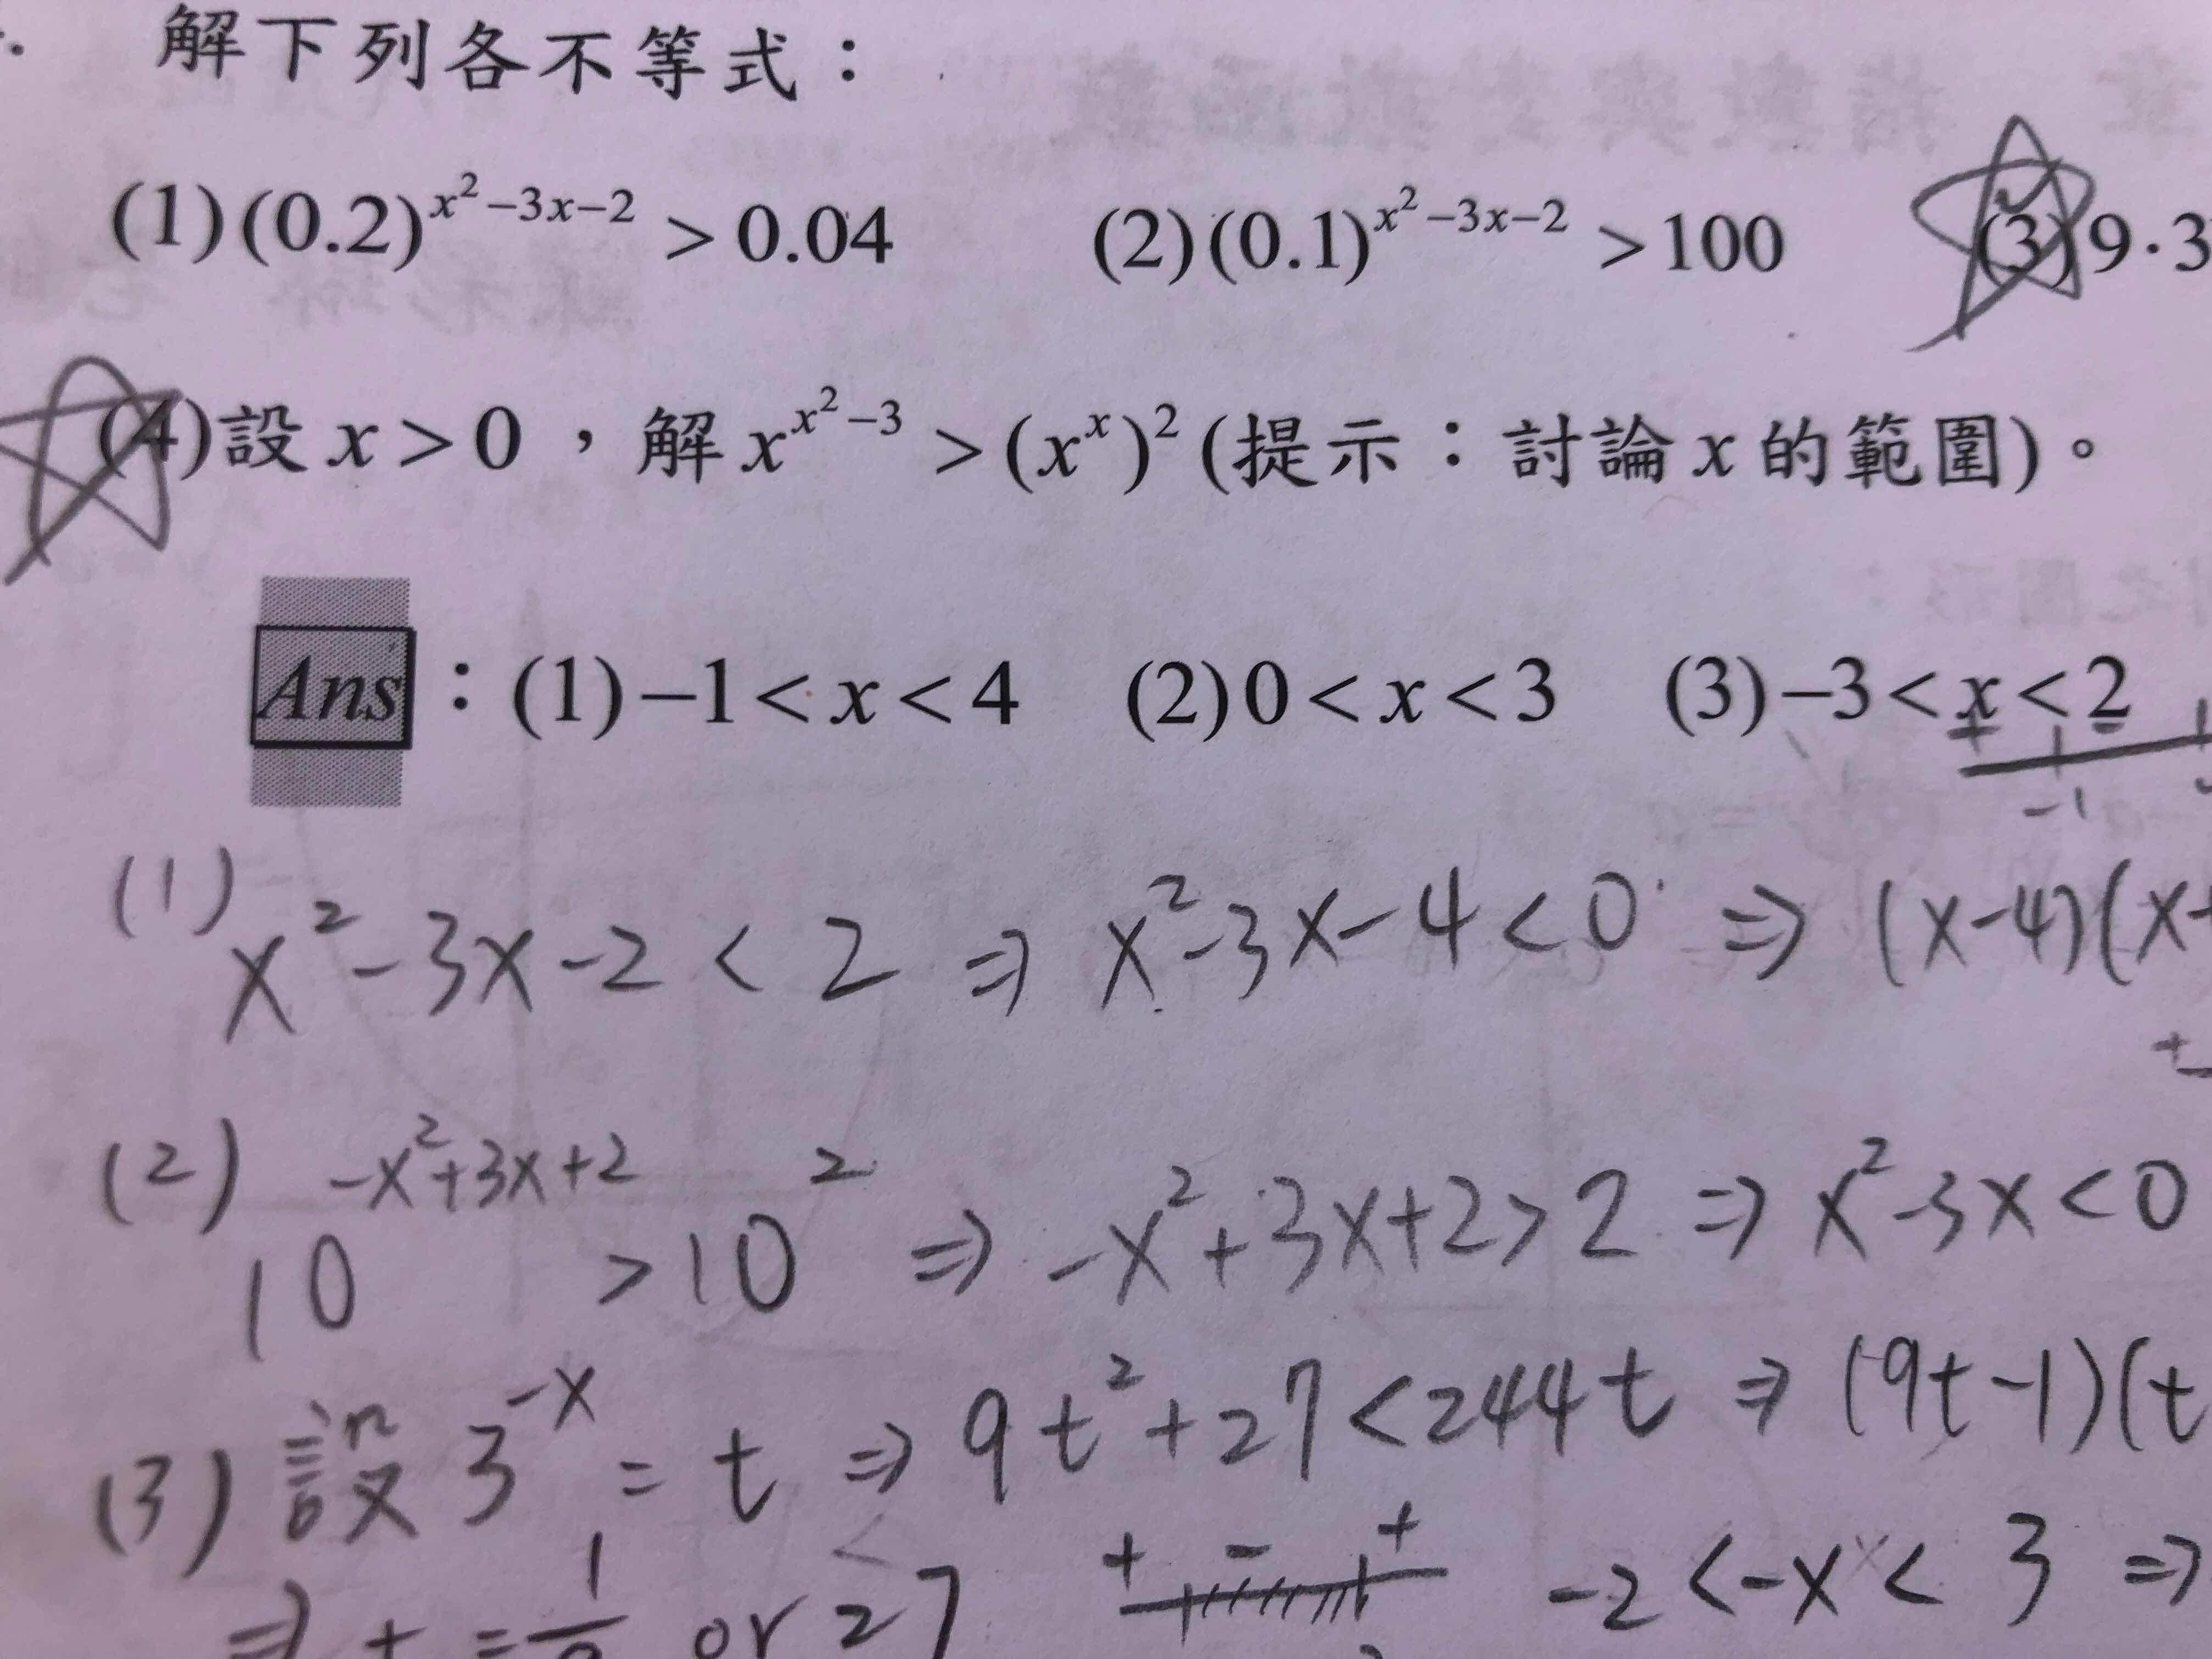 解下列各不等式：
(1) (0.2)^{x²-3x-2} > 0.04 (2) (0.1)^{x²-3x-2} > 100 (3) 9·3
(4) 設 x > 0 ，解 x^{x²-3} > (x^x)² (提示：討論 x 的範圍)。
Ans：(1) -1 < x < 4 (2) 0 < x < 3 (3) -3 < x < 2
-1
(1) x² - 3x - 2 < 2 ⇒ x² - 3x - 4 < 0 ⇒ (x-4)(x+
(2) 10^{-x²+3x+2} > 10² ⇒ -x² + 3x + 2 > 2 ⇒ x² - 3x < 0
(3) 設 3^{-x} = t ⇒ 9t² + 27 < 244t ⇒ (9t-1)(t
⇒ t = or 27 + - + -2 < -x < 3 ⇒